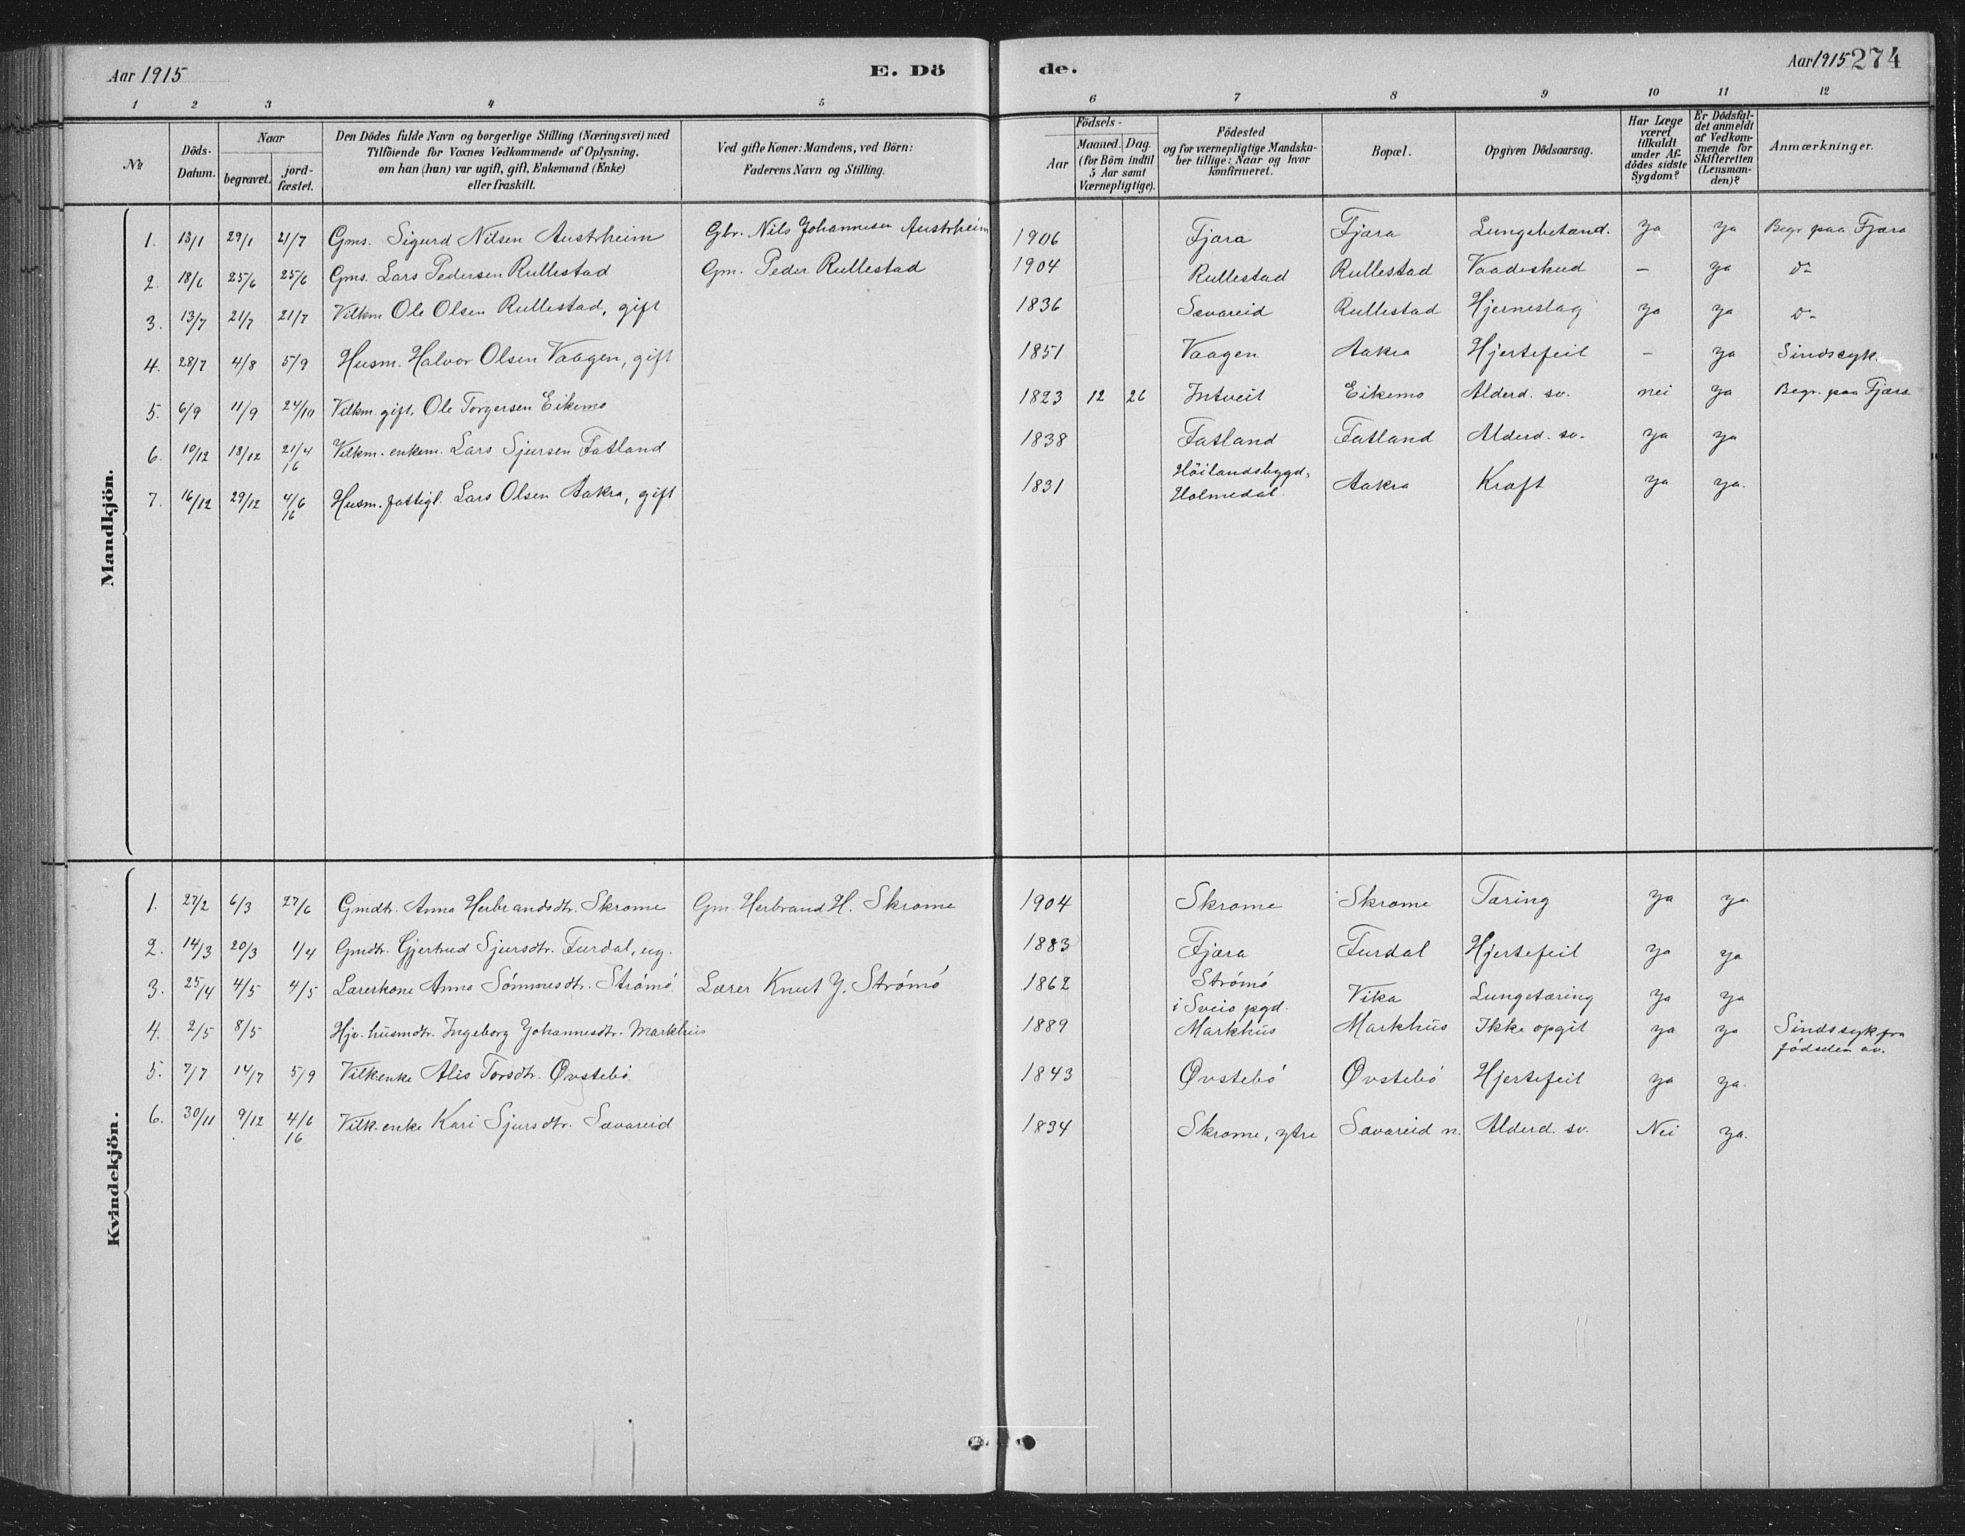 Aar 1915 E. Dö de. Aar 1915 274
1 2 3 4 5 6 7 8 9 10 11 12
No
Döds-Datum.
Naar
begravet.
jord-fæstet.
Den Dödes fulde Navn og borgerlige Stilling (Næringsvei) med
Tilföiende for Voxnes Vedkommende af Oplysning,
om han (hun) var ugift, gift, Enkemand (Enke)
eller fraskilt.
Ved gifte Koner: Mandens, ved Börn:
Faderens Navn og Stilling.
Födsels-
Aar
Maaned. Dag.
(for Börn indtil
5 Aar samt
Værnepligtige).
Födested
og for værnepligtige Mandska-
ber tillige: Naar og hvor
konfirmeret.
Bopæl.
Opgiven Dödsaarsag.
Har Læge
været
tilkaldt
under Af-
dödes sidste
Sygdom?
Er Dödsfal-
det anmeldt
af Vedkom-
mende for
Skifteretten
(Lensman-
den)?
Anmærkninger.
Mandkjön.
1. 13/1 29/1 21/7 Gms. Sigurd Nilsen Austrheim Gbr. Nils Johannesen Austrheim 1906 Fjæra Fjæra Lungebetænd. ja ja Begr. paa Fjæra
2. 18/6 25/6 25/6 Gms. Lars Pedersen Rullestad Gm. Peder Rullestad 1904 Rullestad Rullestad Vaadeskud – ja do
3. 13/7 21/7 21/7 Vilkm Ole Olsen Rullestad, gift 1836 Sævareid Rullestad Hjerneslag ja ja do
4. 28/7 4/8 5/9 Husm. Halvor Olsen Vaagen, gift 1851 Vaagen Aakra Hjertefeil – ja Sindssyk.
5. 6/9 11/9 24/10 Vilkm. gift. Ole Torgersen Eikemo 1823 12 26 Intveit Eikemo Alderd. sv. nei ja Begr. paa Fjæra
6. 10/12 18/12 21/4 16 Vilkm. enkem. Lars Sjursen Fatland 1838 Fatland Fatland Alderd. sv. ja ja
7. 16/12 29/12 4/6 16 Husm. fattigl. Lars Olsen Aakra, gift 1831 Höilandsbygd, Holmedal Aakra Kræft ja ja.
Kvindekjön.
1. 27/2 6/3 27/6 Gmdtr. Anna Herbrandsdtr. Skrome Gm. Herbrand H. Skrome 1904 Skrome Skrome Tæring ja ja
2. 14/3 20/3 1/4 Gmdtr. Gjertrud Sjursdtr. Furdal, ug. 1883 Fjæra Furdal Hjertefeil ja ja
3. 25/4 4/5 4/5 Lærerkone Anna Sömmesdtr. Strømø Lærer Knut J. Strømø 1862 Strømø i Sveio pgd. Vika Lungetæring ja ja
4. 2/5 8/5 Hjv. husmdtr. Ingeborg Johannesdtr. Markhus 1889 Markhus Markhus Ikke opgit ja ja Sindssyk fra
fødselen av.
5. 7/7 14/7 5/9 Vilkenke Alis Torsdtr. Øvstebö 1843 Øvstebö Øvstebö Hjertefeil ja ja.
6. 30/11 9/12 4/6 16 Vilk. enke Kari Sjursdtr. Sævareid 1834 Skrome, ytre Sævareid n. Alderd. sv. Nei ja.